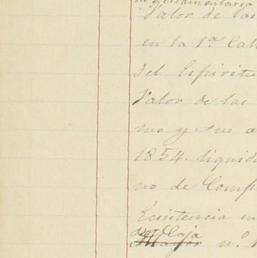 Valor de las
en la 1ª Cal
del Espiritu
Valor de las
mo y sus a
1854. liquid
no de Comp
Existencia en
de Caja
Mayor n.º